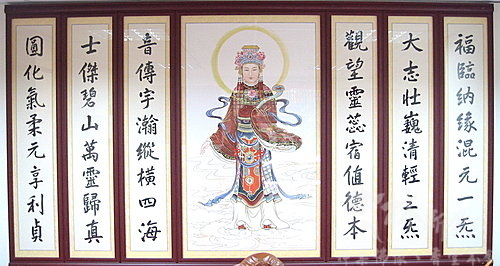 福臨納缘混元一炁
大志壯巍清輕三炁
觀望靈蕊宿值德本
音傳宇瀚縱橫四海
士傑碧山萬靈歸真
圖化氣柔元享利貞